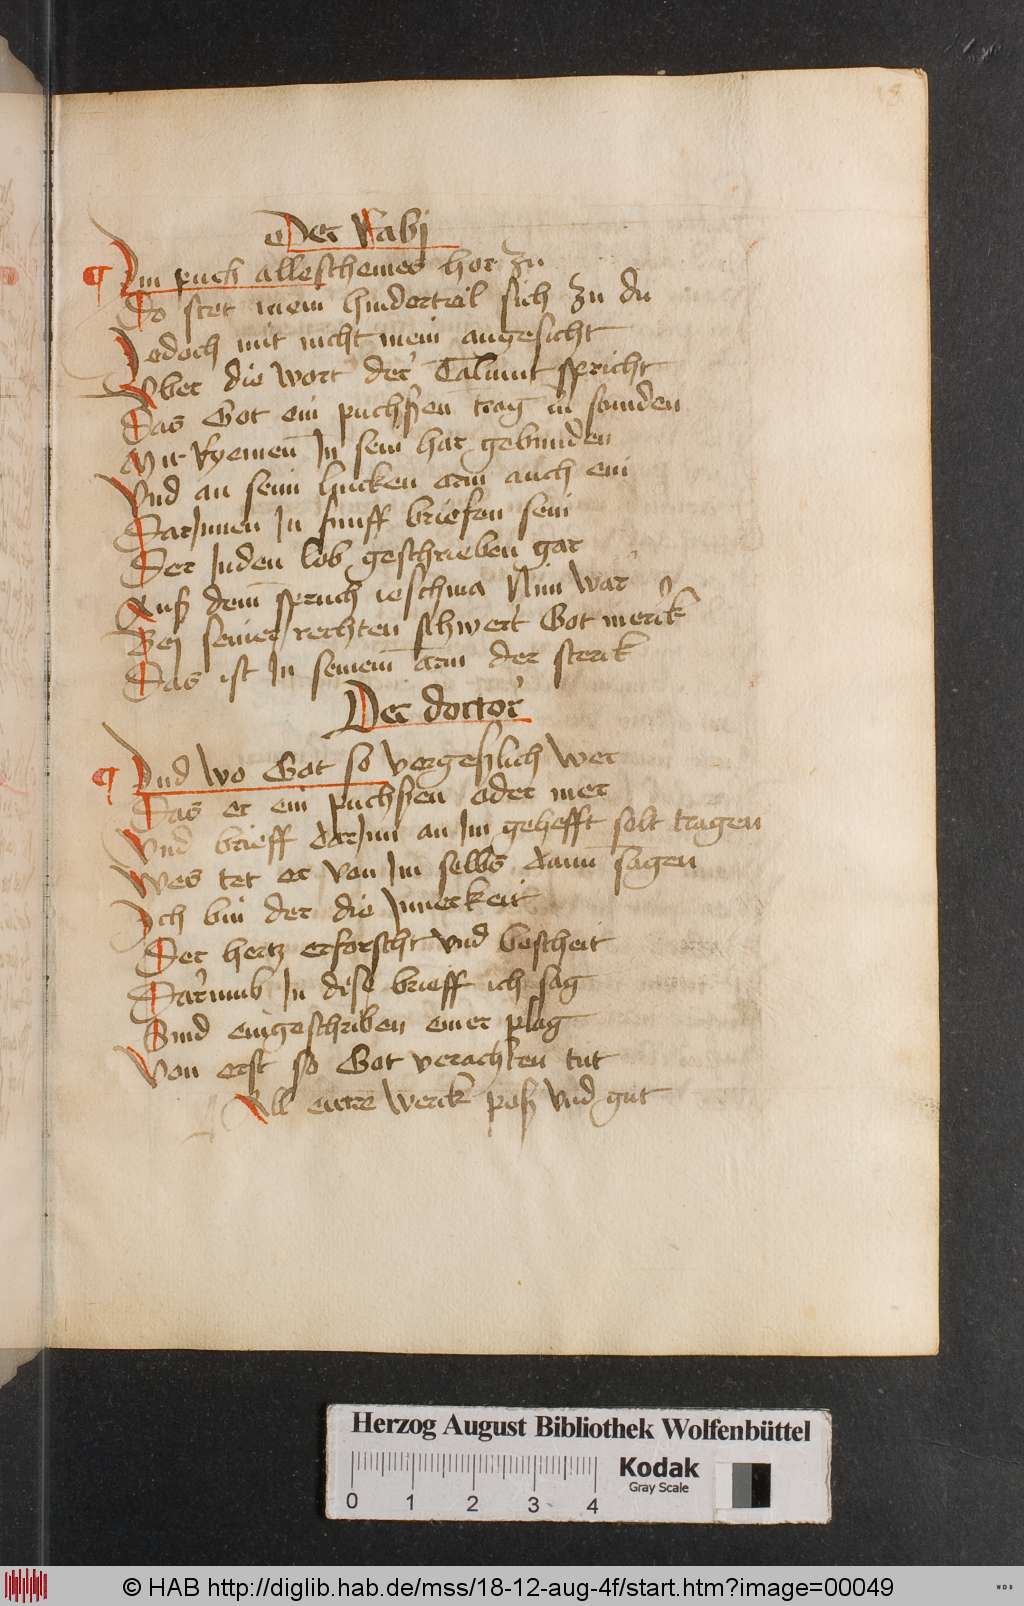 Der Rabi
¶ Im puch alleschemes hor zu
So stet mein hinderteil sich zu du
Jedoch mit nicht mein angesicht
Vber die wort der Talmut spricht
Das Got ein puchssen trag in sunden
Mit Ryemen In sein har gebunden
Vnd an seim lincken arm auch ein
DarJnnen In funff briefen sein
Der Juden lob geschrieben gar
Auß dem spruch ieschma Nim war
Bej seiner rechten schwert Got merck
Das ist In seinem arm der sterck
Der doctor
¶ Vnd wo Got so vergeßlich wer
Das er ein puchssen oder mer
Vnd brieff darJnn an Im gehefft solt tragen
Wes tet er von Im selbs dann sagen
Ich bin der die Jnnerkeit
Der hertz erforscht vnd bescheit
Darumb In dise brieff ich sag
Sind eingeschriben ewer plag
Von erst so Got verachten tut
All ewre werck poß vnd gut
Herzog August Bibliothek Wolfenbüttel
Kodak
Gray Scale
0 1 2 3 4
© HAB http://diglib.hab.de/mss/18-12-aug-4f/start.htm?image=00049